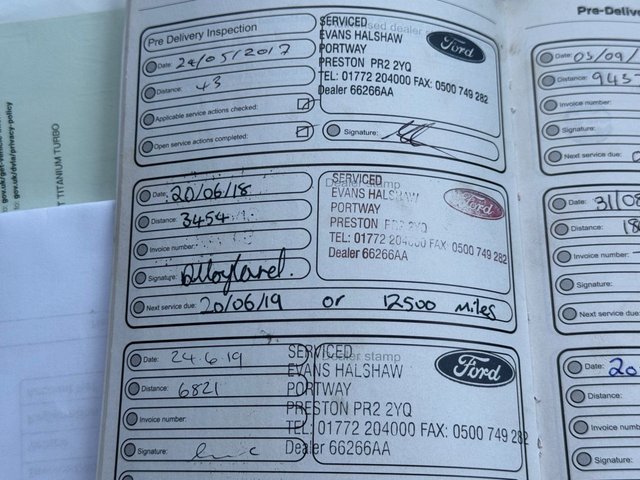 Pre Delivery Inspection
Date: 24/05/2017
Distance: 43
Applicable service actions checked:
Open service actions completed:
Signature:
SERVICED
EVANS HALSHAW
PORTWAY
PRESTON PR2 2YQ
TEL: 01772 204000 FAX: 0500 749 282
Dealer 66266AA
Ford
Date: 20/06/18
Distance: 3454
Invoice number:
Signature:
Next service due: 20/06/19 or 12500 miles
Dealer stamp
SERVICED
EVANS HALSHAW
PORTWAY
PRESTON PR2 2YQ
TEL: 01772 204000 FAX: 0500 749 282
Dealer 66266AA
Ford
Date: 24.6.19
Distance: 6821
Invoice number:
Signature:
Dealer stamp
SERVICED
EVANS HALSHAW
PORTWAY
PRESTON PR2 2YQ
TEL: 01772 204000 FAX: 0500 749 282
Dealer 66266AA
Ford
Pre-Delive
Date: 05/09/
Distance: 945
Invoice number:
Signature:
Next service due:
Date: 31/08
Distance: 18
Invoice number:
Signature:
Next service due:
Date: 20
Distance:
Invoice numb
Signature:
TITANIUM TURBO
gov.uk/dvla/privacy-policy